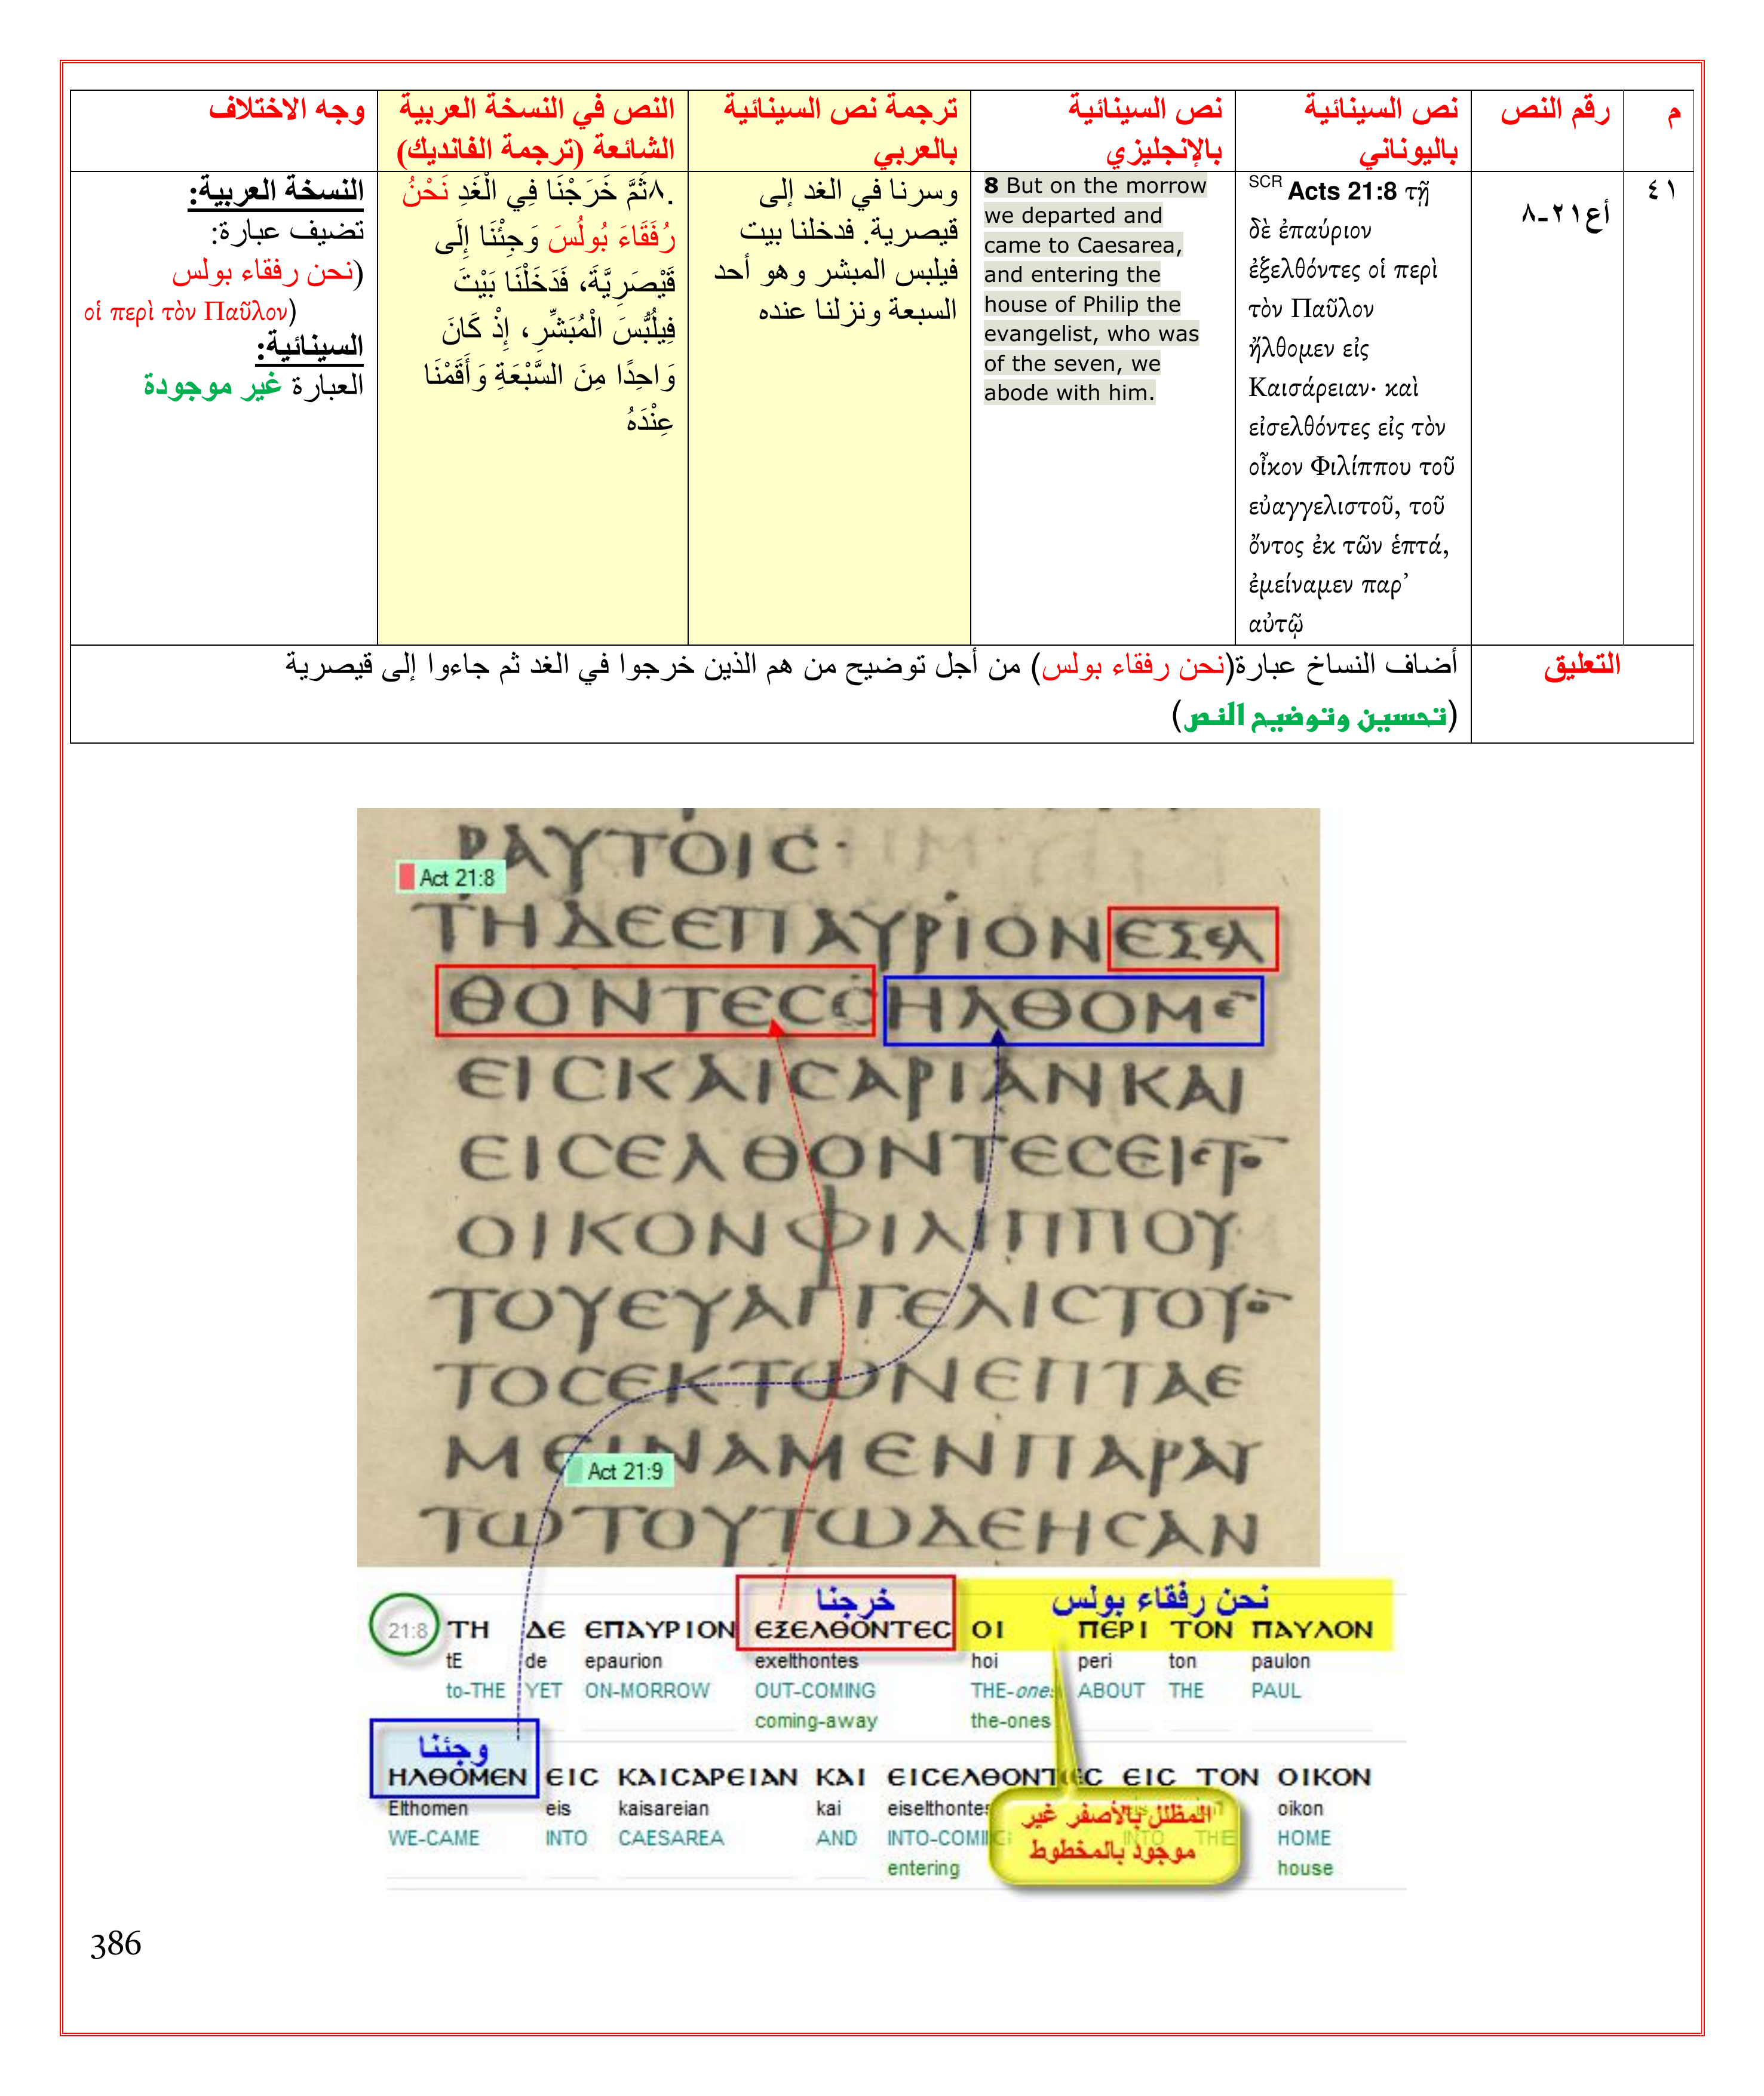 م
رقم النص
نص السينائية
باليوناني
نص السينائية
بالإنجليزي
ترجمة نص السينائية
بالعربي
النص في النسخة العربية
الشائعة (ترجمة الفانديك)
وجه الاختلاف
٤١
أع٢١-٨
SCR Acts 21:8 τῇ
δὲ ἐπαύριον
ἐξελθόντες οἱ περὶ
τὸν Παῦλον
ἤλθομεν εἰς
Καισάρειαν· καὶ
εἰσελθόντες εἰς τὸν
οἶκον Φιλίππου τοῦ
εὐαγγελιστοῦ, τοῦ
ὄντος ἐκ τῶν ἑπτά,
ἐμείναμεν παρ’
αὐτῷ
8 But on the morrow
we departed and
came to Caesarea,
and entering the
house of Philip the
evangelist, who was
of the seven, we
abode with him.
وسرنا في الغد إلى
قيصرية. فدخلنا بيت
فيلبس المبشر وهو أحد
السبعة ونزلنا عنده
٨.ثُمَّ خَرَجْنَا فِي الْغَدِ نَحْنُ
رُفَقَاءَ بُولُسَ وَجِئْنَا إِلَى
قَيْصَرِيَّةَ، فَدَخَلْنَا بَيْتَ
فِيلُبُّسَ الْمُبَشِّرِ، إِذْ كَانَ
وَاحِدًا مِنَ السَّبْعَةِ وَأَقَمْنَا
عِنْدَهُ
النسخة العربية:
تضيف عبارة:
(نحن رفقاء بولس
οἱ περὶ τὸν Παῦλον)
السينائية:
العبارة غير موجودة
التعليق
أضاف النساخ عبارة(نحن رفقاء بولس) من أجل توضيح من هم الذين خرجوا في الغد ثم جاءوا إلى قيصرية
(تحسين وتوضيح النص)
ΡΑΥΤΟΙC·
Act 21:8
ΤΗΔΕΕΠΑΥΡΙΟΝΕΞΕΛ
ΘΟΝΤΕC ΗΛΘΟΜΕ̅
ΕΙCΚΑΙCΑΡΙΑΝΚΑΙ
ΕΙCΕΛΘΟΝΤΕCΕΙCΤΟ̅
ΟΙΚΟΝΦΙΛΙΠΠΟΥ
ΤΟΥΕΥΑΓΓΕΛΙCΤΟΥΟ̅
ΤΟCΕΚΤΩΝΕΠΤΑΕ
ΜΕΙΝΑΜΕΝΠΑΡΑΥ
Act 21:9
ΤΩΤΟΥΤΩΔΕΗCΑΝ
خرجنا
نحن رفقاء بولس
21:8 ΤΗ ΔΕ ΕΠΑΥΡΙΟΝ ΕΞΕΛΘΟΝΤΕC ΟΙ ΠΕΡΙ ΤΟΝ ΠΑΥΛΟΝ
tE de epaurion exelthontes hoi peri ton paulon
to-THE YET ON-MORROW OUT-COMING THE-ones ABOUT THE PAUL
coming-away the-ones
وجئنا
ΗΛΘΟΜΕΝ ΕΙC ΚΑΙCΑΡΕΙΑΝ ΚΑΙ ΕΙCΕΛΘΟΝΤΕC ΕΙC ΤΟΝ ΟΙΚΟΝ
Elthomen eis kaisareian kai eiselthontes oikon
WE-CAME INTO CAESAREA AND INTO-COMING INTO THE HOME
entering house
المظلل بالأصفر غير
موجود بالمخطوط
386